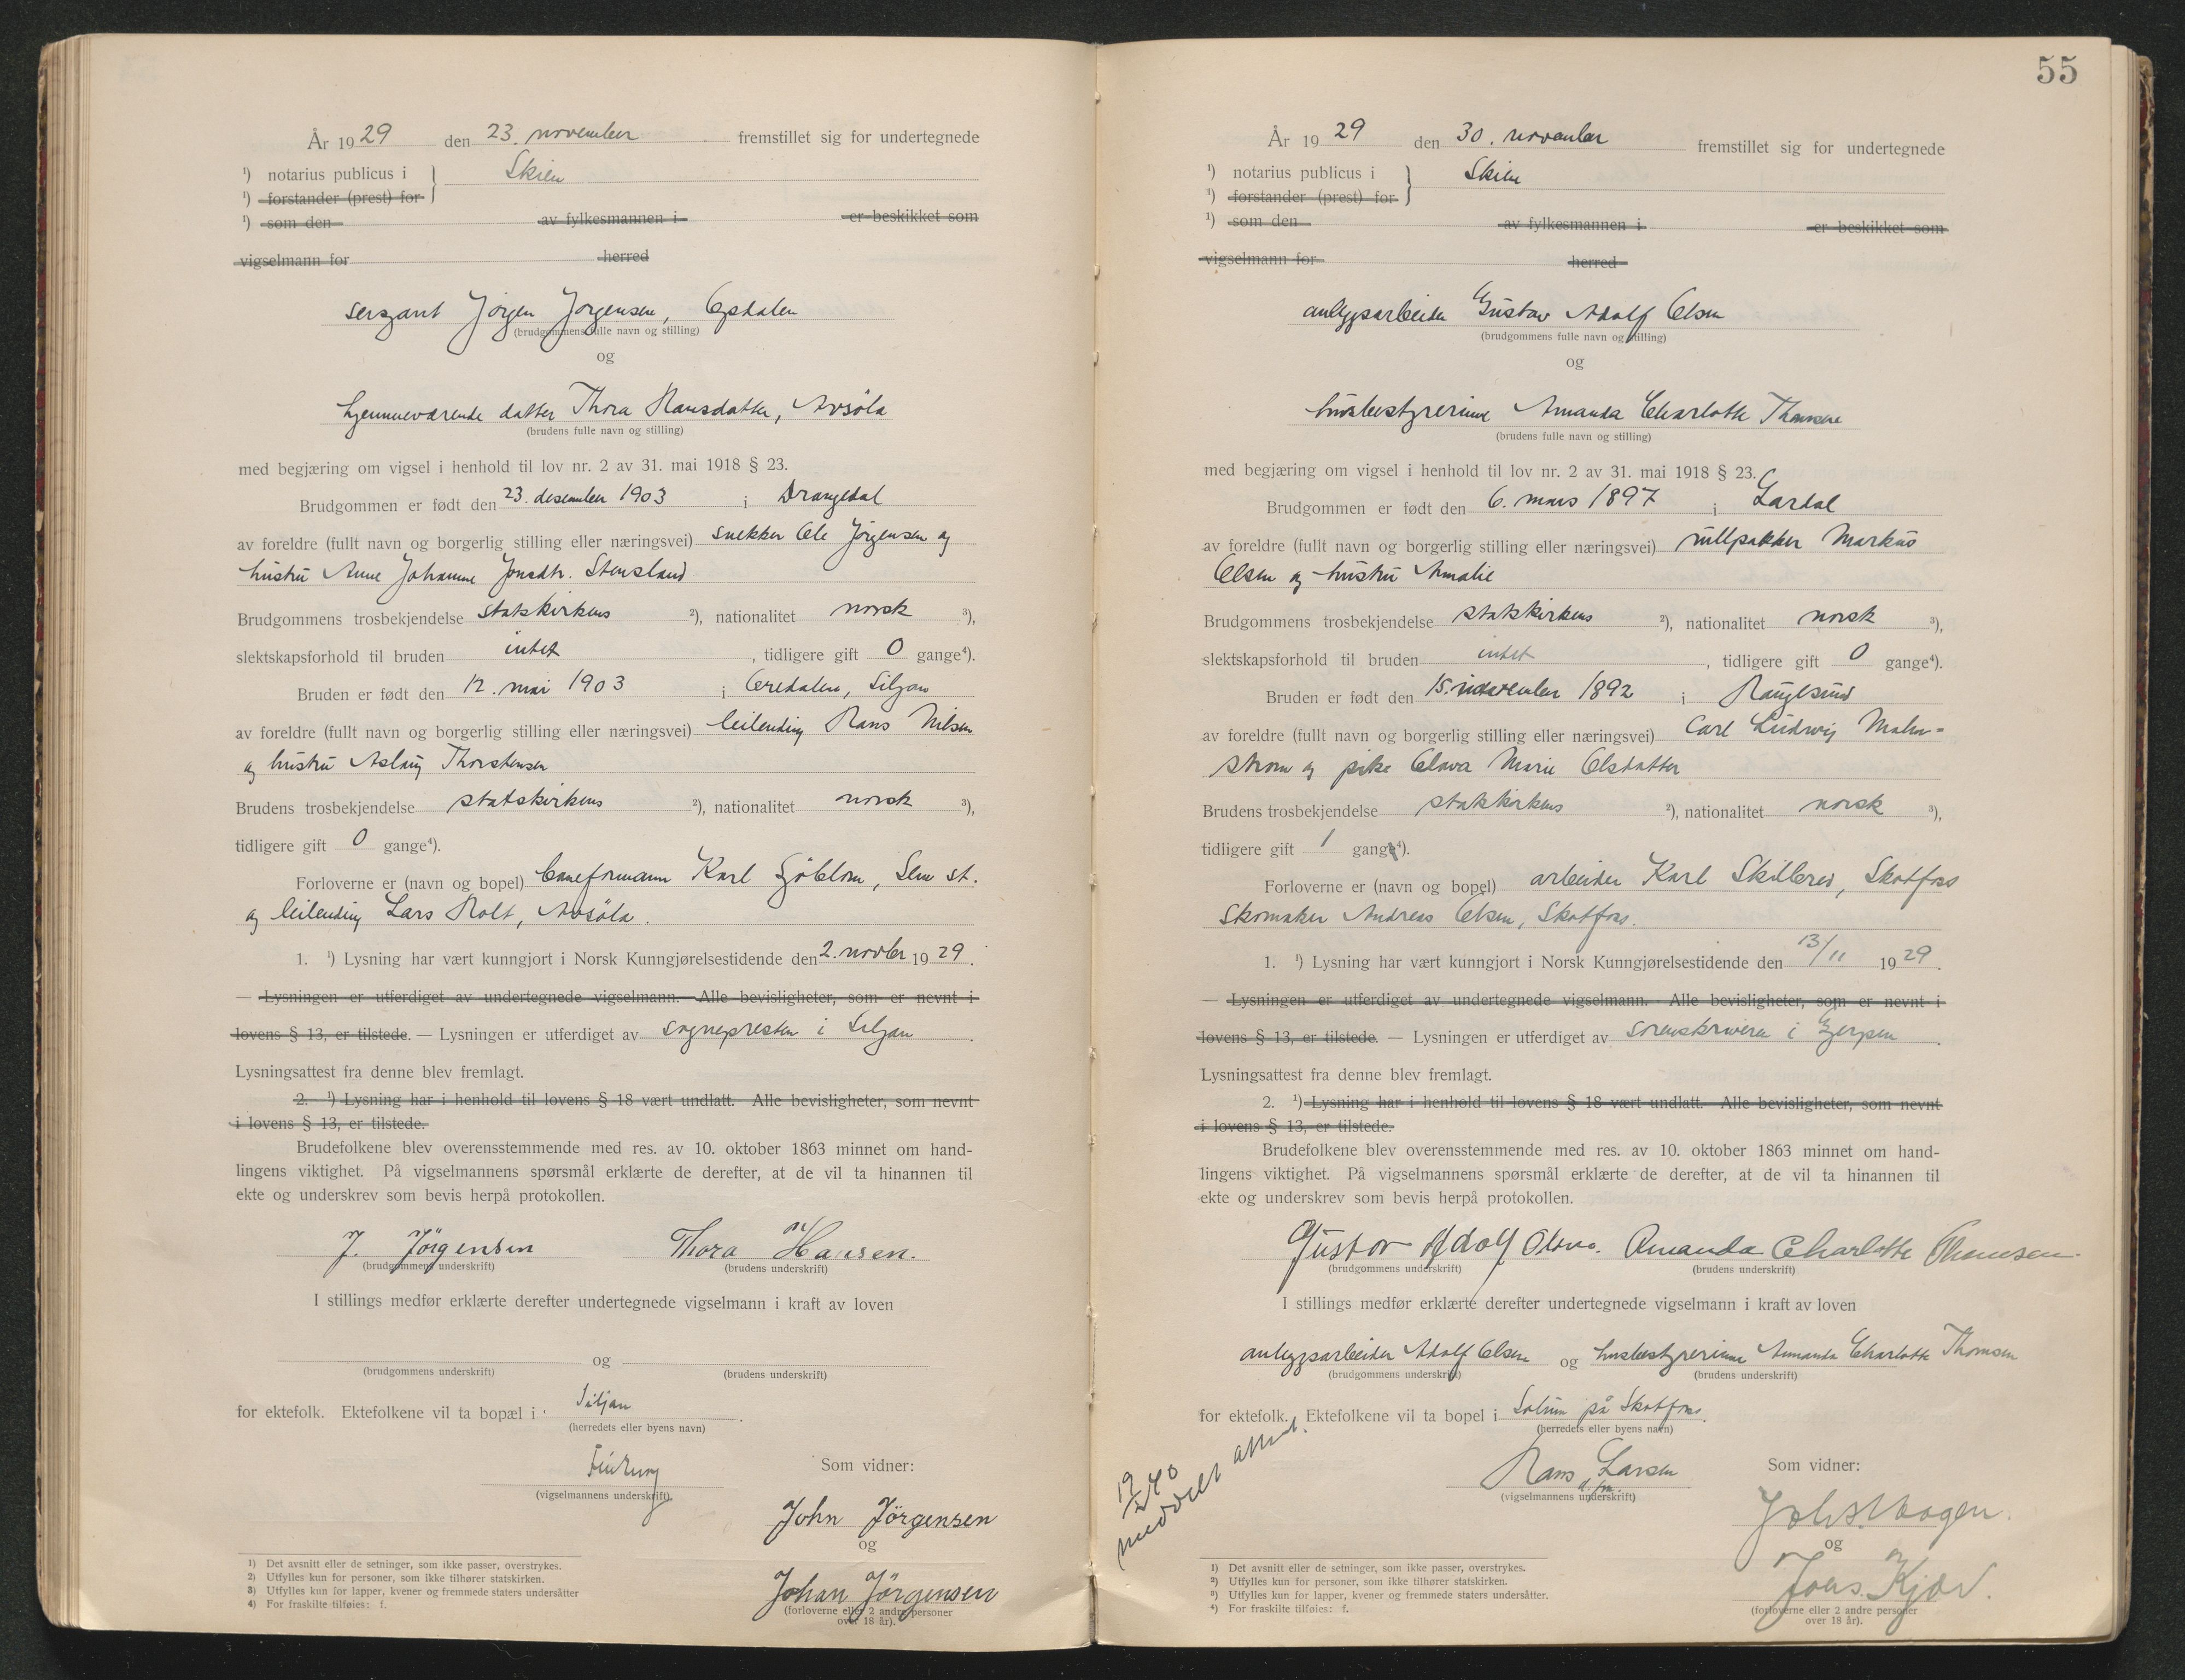 År 1929 den 23. november fremstillet sig for undertegnede
¹) notarius publicus i } Skien
¹) forstander (prest) for
¹) som den av fylkesmannen i er beskikket som
vigselmann for herred
sersjant Jörgen Jörgensen, Opdalen
(brudgommens fulle navn og stilling)
og
hjemmeværende datter Thora Hansdatter,
(brudens fulle navn og stilling)
med begjæring om vigsel i henhold til lov nr. 2 av 31. mai 1918 § 23.
Brudgommen er født den 23. desember 1903 i Drangedal
av foreldre (fullt navn og borgerlig stilling eller næringsvei) snekker Ole Jörgensen og
hustru Anne Johanne Jonsdtr. Stensland
Brudgommens trosbekjendelse statskirkens ²), nationalitet norsk ³),
slektskapsforhold til bruden intet, tidligere gift 0 gange⁴).
Bruden er født den 12. mai 1903 i Oredalen, Siljan
av foreldre (fullt navn og borgerlig stilling eller næringsvei) leilending Hans Nilsen
og hustru Aslaug Thorstensen
Brudens trosbekjendelse statskirkens ²), nationalitet norsk ³),
tidligere gift 0 gange⁴).
Forloverne er (navn og bopel) baneformann Karl Sjöblom, st.
og leilending Lars Holt,
1. ¹) Lysning har vært kunngjort i Norsk Kunngjørelsestidende den 2. novbr 1929.
— Lysningen er utferdiget av undertegnede vigselmann. Alle bevisligheter, som er nevnt i
lovens § 13, er tilstede. — Lysningen er utferdiget av sognepresten i Siljan.
Lysningsattest fra denne blev fremlagt.
2. ¹) Lysning har i henhold til lovens § 18 vært undlatt. Alle bevisligheter, som nevnt
i lovens § 13, er tilstede.
Brudefolkene blev overensstemmende med res. av 10. oktober 1863 minnet om hand-
lingens viktighet. På vigselmannens spørsmål erklærte de derefter, at de vil ta hinannen til
ekte og underskrev som bevis herpå protokollen.
J. Jörgensen Thora Hansen.
(brudgommens underskrift) (brudens underskrift)
I stillings medfør erklærte derefter undertegnede vigselmann i kraft av loven
og
(brudgommens underskrift) (brudens underskrift)
for ektefolk. Ektefolkene vil ta bopæl i Siljan.
(herredets eller byens navn)
Som vidner:
(vigselmannens underskrift)
John Jörgensen
og
Johan Jörgensen
(forloverne eller 2 andre personer
over 18 år).
1) Det avsnitt eller de setninger, som ikke passer, overstrykes.
2) Utfylles kun for personer, som ikke tilhører statskirken.
3) Utfylles kun for lapper, kvener og fremmede staters undersåtter
4) For fraskilte tilføies: f.
55
År 1929 den 30. november fremstillet sig for undertegnede
¹) notarius publicus i } Skien
¹) forstander (prest) for
¹) som den av fylkesmannen i er beskikket som
vigselmann for herred
anleggsarbeider Gustav Adolf Olsen
(brudgommens fulle navn og stilling)
og
husbestyrerinne Amanda Charlotte Thomsen
(brudens fulle navn og stilling)
med begjæring om vigsel i henhold til lov nr. 2 av 31. mai 1918 § 23.
Brudgommen er født den 6. mars 1897 i Lardal
av foreldre (fullt navn og borgerlig stilling eller næringsvei) rullpakker Markus
Olsen og hustru Amalie
Brudgommens trosbekjendelse statskirkens ²), nationalitet norsk ³),
slektskapsforhold til bruden intet, tidligere gift 0 gange⁴).
Bruden er født den 15. november 1892 i Haugesund
av foreldre (fullt navn og borgerlig stilling eller næringsvei) Carl Ludwig Malm-
strøm og pike Olava Marie Olsdatter
Brudens trosbekjendelse statskirkens ²), nationalitet norsk ³),
tidligere gift 1 gang⁴).
Forloverne er (navn og bopel) arbeider Karl Skilbred, Skotfoss
skomaker Andreas Olsen, Skotfoss.
1. ¹) Lysning har vært kunngjort i Norsk Kunngjørelsestidende den 13/11 1929.
— Lysningen er utferdiget av undertegnede vigselmann. Alle bevisligheter, som er nevnt i
lovens § 13, er tilstede. — Lysningen er utferdiget av sorenskriveren i Gjerpen.
Lysningsattest fra denne blev fremlagt.
2. ¹) Lysning har i henhold til lovens § 18 vært undlatt. Alle bevisligheter, som nevnt
i lovens § 13, er tilstede.
Brudefolkene blev overensstemmende med res. av 10. oktober 1863 minnet om hand-
lingens viktighet. På vigselmannens spørsmål erklærte de derefter, at de vil ta hinannen til
ekte og underskrev som bevis herpå protokollen.
Gustav Adolf Olsen. Amanda Charlotte Thomsen.
(brudgommens underskrift) (brudens underskrift)
I stillings medfør erklærte derefter undertegnede vigselmann i kraft av loven
anleggsarbeider Adolf Olsen og husbestyrerinne Amanda Charlotte Thomsen
(brudgommens underskrift) (brudens underskrift)
for ektefolk. Ektefolkene vil ta bopel i Solum på Skotfoss.
(herredets eller byens navn)
meddelt attest.
Hans Larsen Som vidner:
(vigselmannens underskrift)
og
Johs. Kjær.
(forloverne eller 2 andre personer
over 18 år).
1) Det avsnitt eller de setninger, som ikke passer, overstrykes.
2) Utfylles kun for personer, som ikke tilhører statskirken.
3) Utfylles kun for lapper, kvener og fremmede staters undersåtter.
4) For fraskilte tilføies: f.